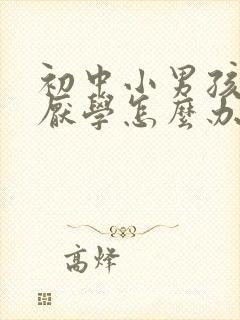 初中小男孩
厭學怎麼办
高烽